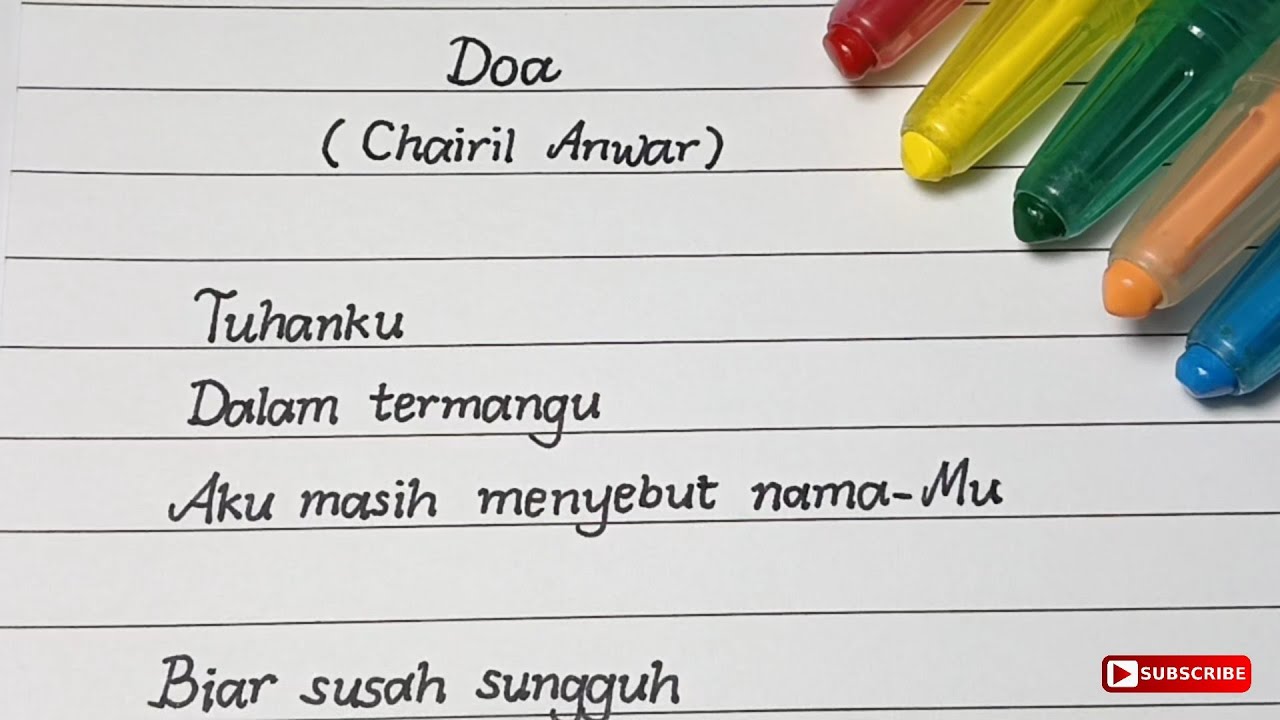 Doa
(Chairil Anwar)
Tuhanku
Dalam termangu
Aku masih menyebut nama-Mu
Biar susah sungguh
SUBSCRIBE